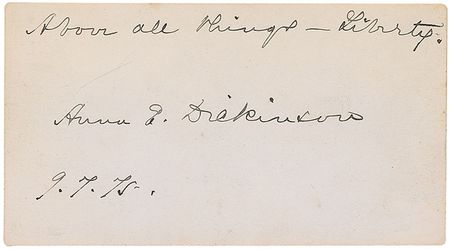 Above all things - Liberty.
Anna E. Dickinson
9. 7. 75.